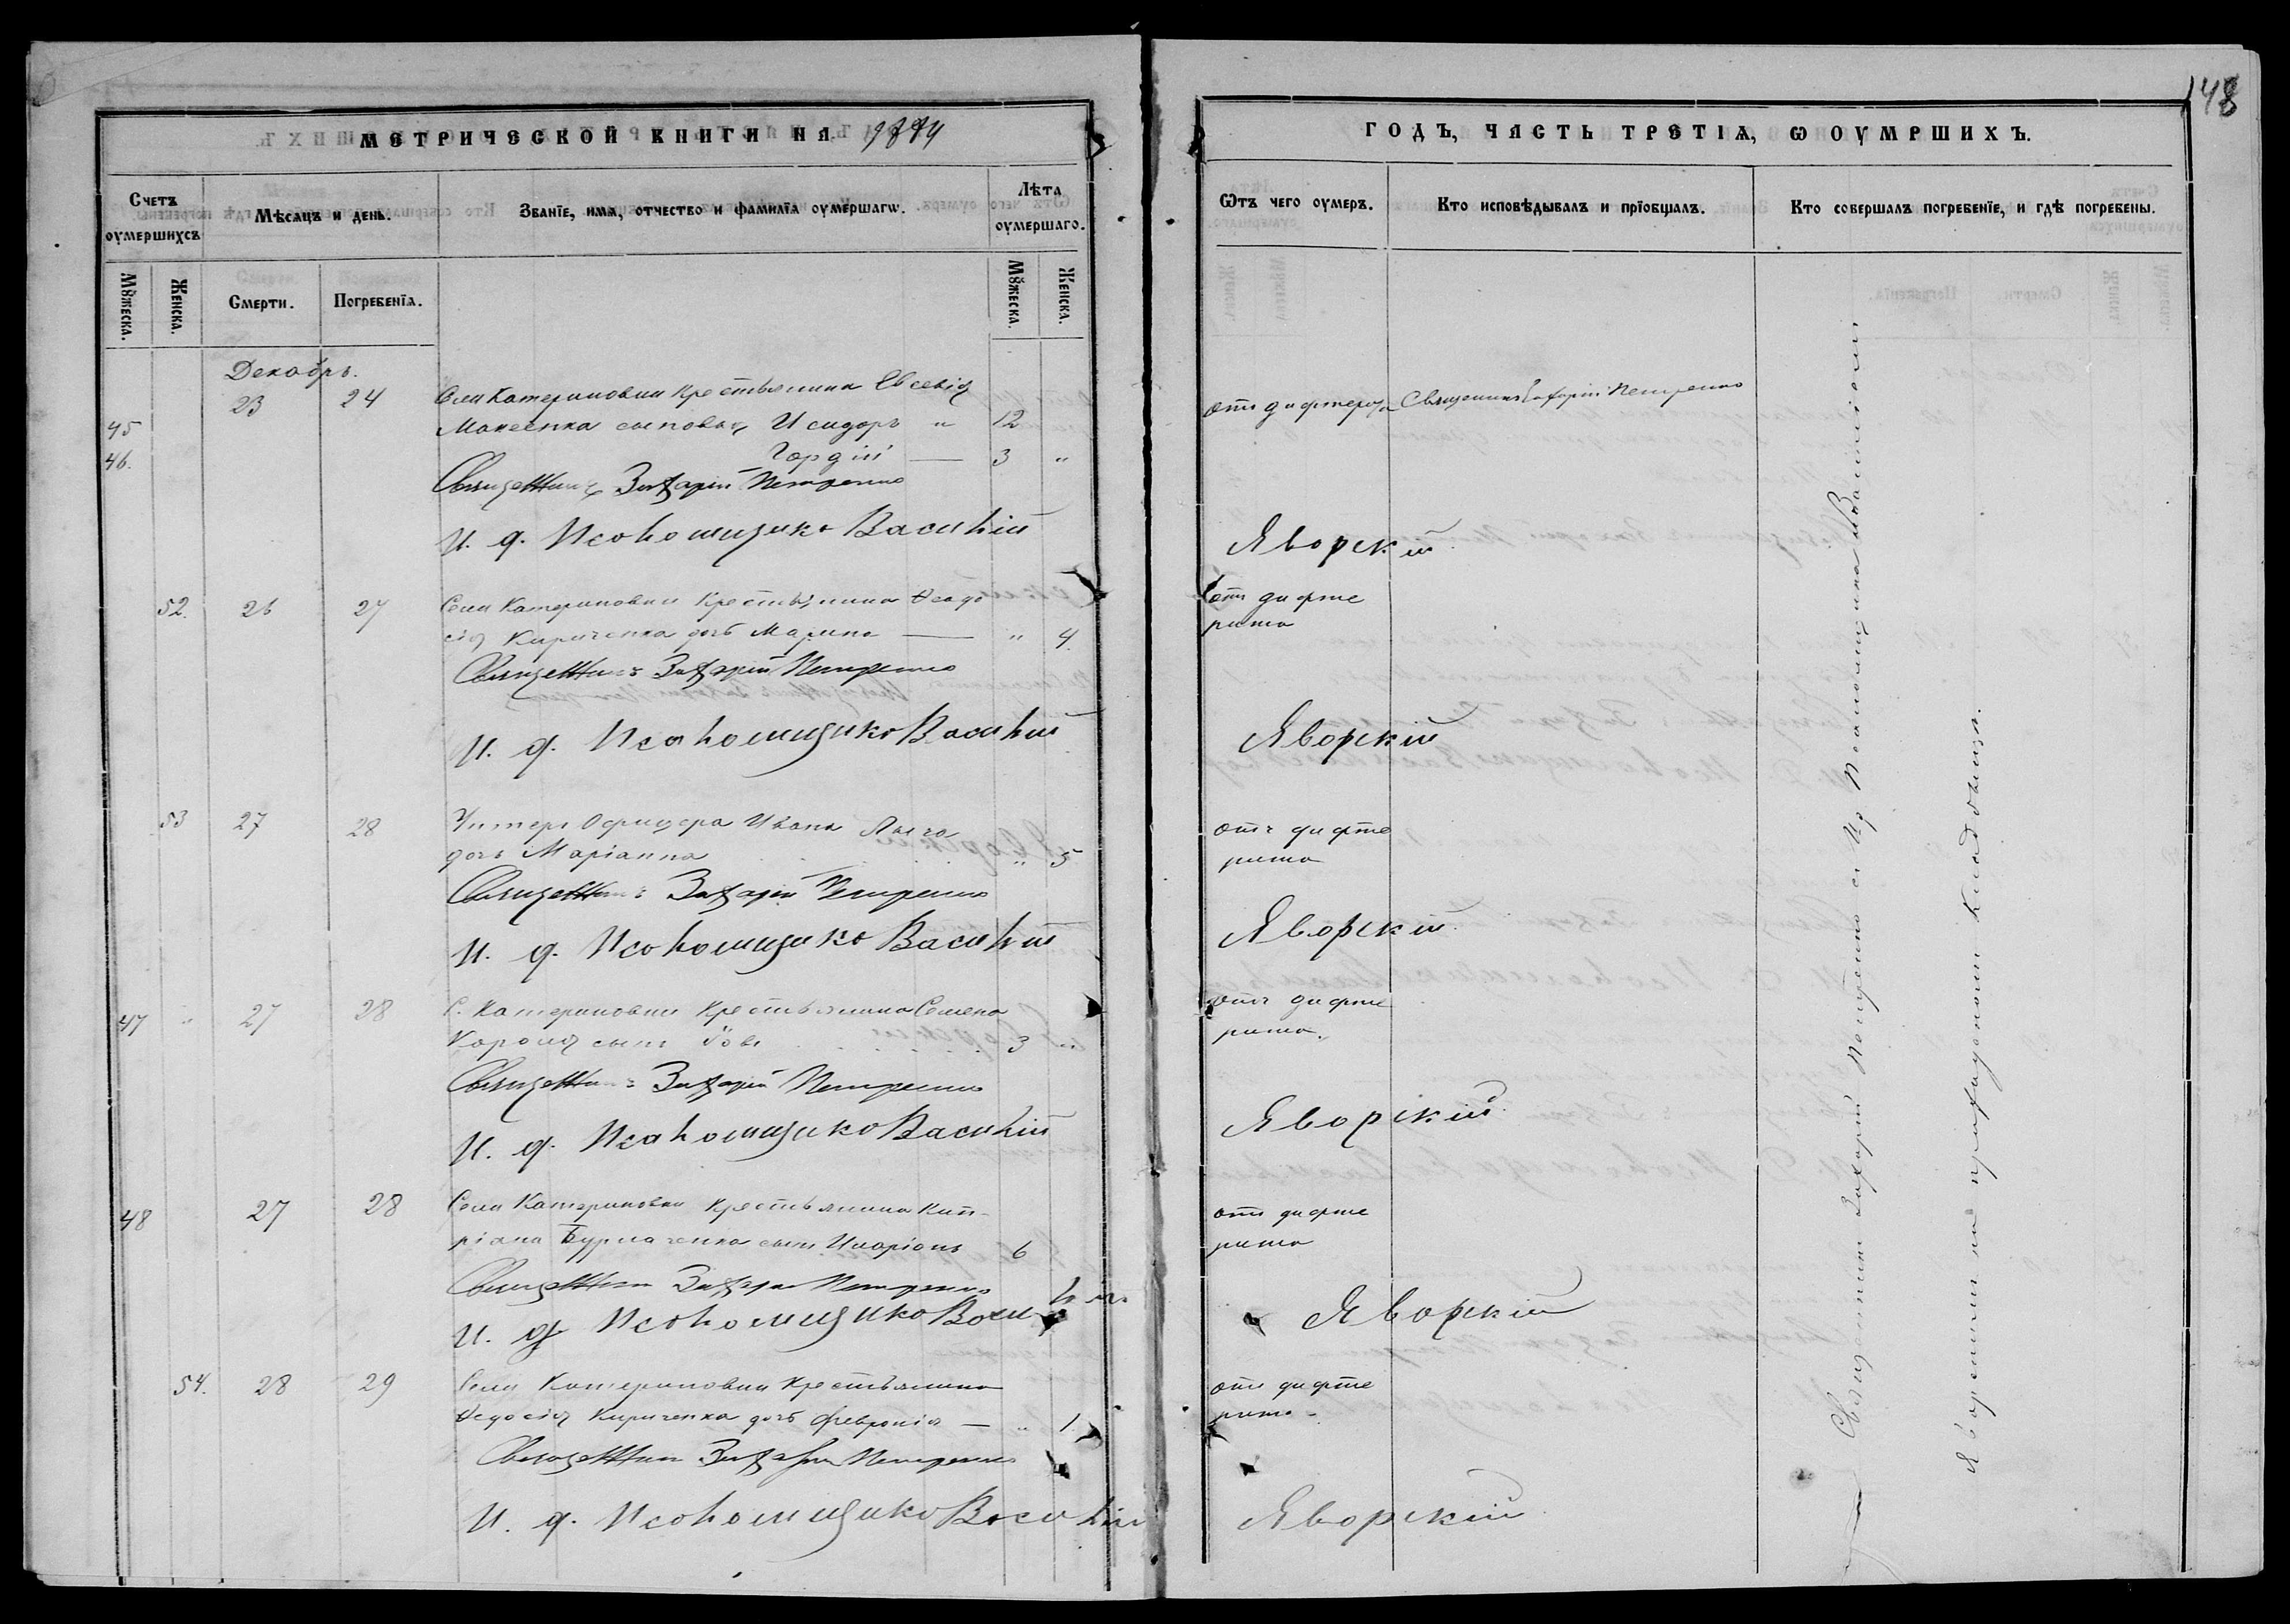 148
МЕТРИЧЕСКОЙ КНИГИ НА 1874 ГОДЪ, ЧАСТЬ ТРЕТІЯ, Ѡ ОУМРШИХЪ.
Счетъ оумершихъ
Мѣсяцъ и день.
Званїе, имя, отчество и фамилїя оумершагѡ.
Лѣта оумершаго.
Ѿтъ чего оумеръ.
Кто исповѣдывалъ и прїобщалъ.
Кто совершалъ погребенїе, и гдѣ погребены.
Мꙋжеска.
Женска.
Смерти.
Погребенїя.
Мꙋжеска.
Женска.
Декабрь.
23 24 Села Катериновки крестьянина Евсевія отъ дифтерита Священникъ Захарій Петренко
45 Мокеенка сыновья, Исидоръ " 12
46. Гордій — 3 "
Священникъ Захарій Петренко
И. д. Псаломщика Василій Яворскій
52. 26 27 Села Катериновки крестьянина Ѳеодо отъ дифте
сія Кириченка дочь Марина — " 4. рита
Священникъ Захарій Петренко
И. д. Псаломщика Василій Яворскій
53 27 28 Унтеръ Офицера Ивана отъ дифте
дочь Маріанна " 5 рита
Священникъ Захарій Петренко
И. д. Псаломщика Василій Яворскій
47 " 27 28 С. Катериновки крестьянина Семена отъ дифте
Короля сынъ Іовъ 3 " рита.
Священникъ Захарій Петренко
И. д. Псаломщика Василій Яворскій
48 27 28 Села Катериновки крестьянина Кип- отъ дифте
ріана Бурлаченка сынъ Иларіонъ 6 рита
Священникъ Захарій Петренко
И. д. Псаломщика Василій Яворскій
54. 28 29 Села Катериновки крестьянина отъ дифте
Ѳедосія Кириченка дочь Февронія — " 1 рита
Священникъ Захарій Петренко
И. д. Псаломщика Василій Яворскій
Священникъ Захарій Петренко съ И. д. Псаломщика Василіемъ
Яворскимъ на приходскомъ кладбищѣ.